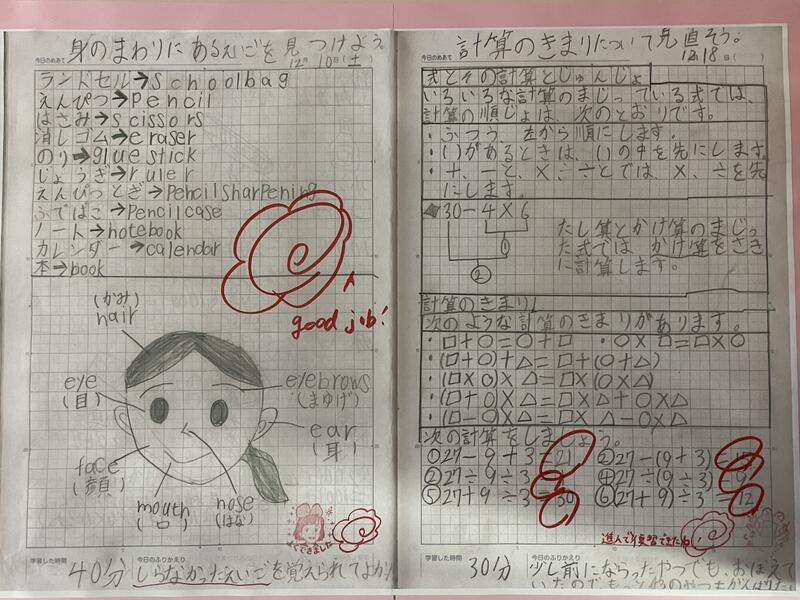 今日のめあて
身のまわりにあるえいごを見つけよう。
12月10日(土)
ランドセル→Schoolbag
えんぴつ→Pencil
はさみ→scissors
消しゴム→eraser
のり→glue stick
じょうぎ→ruler
えんぴつとぎ→PencilSharpening
ふでばこ→Pencilcase
ノート→notebook
カレンダー→calendar
本→book
A
good job!
(かみ)
hair
eye
(目)
eyebrows
(まゆげ)
ear
(耳)
face
(顔)
mouth
(口)
nose
(はな)
よくできました
学習した時間
40分
今日のふりかえり
しらなかったえいごを覚えられてよか
今日のめあて
計算のきまりについて見直そう。
12月18日( )
式とその計算とじゅんじょ
いろいろな計算のまじっている式では、
計算の順じょは、次のとおりです。
・ふつう 左から順にします。
・( )があるときは、( )の中を先にします。
・+、-と、×、÷とでは、×、÷を先
にします。
30-4×6
①
②
たし算とかけ算のまじっ
た式では かけ算をさき
に計算します。
計算のきまり
次のような計算のきまりがあります。
・□+○=○+□ ・○×□=□×○
・(□+○)+△=□+(○+△)
・(□×○)×△=□×(○×△)
・(□+○)×△=□×△+○×△
・(□-○)×△=□×△-○×△
次の計算をしましょう。
①27-9+3=21 ②27-(9+3)=15
③27÷9÷3= ④27÷(9÷3)=9
⑤27+9÷3=30 ⑥(27+9)÷3=12
進んで復習できたね
学習した時間
30分
今日のふりかえり
少し前にならったやつでも、おぼえて
いたのでもっと